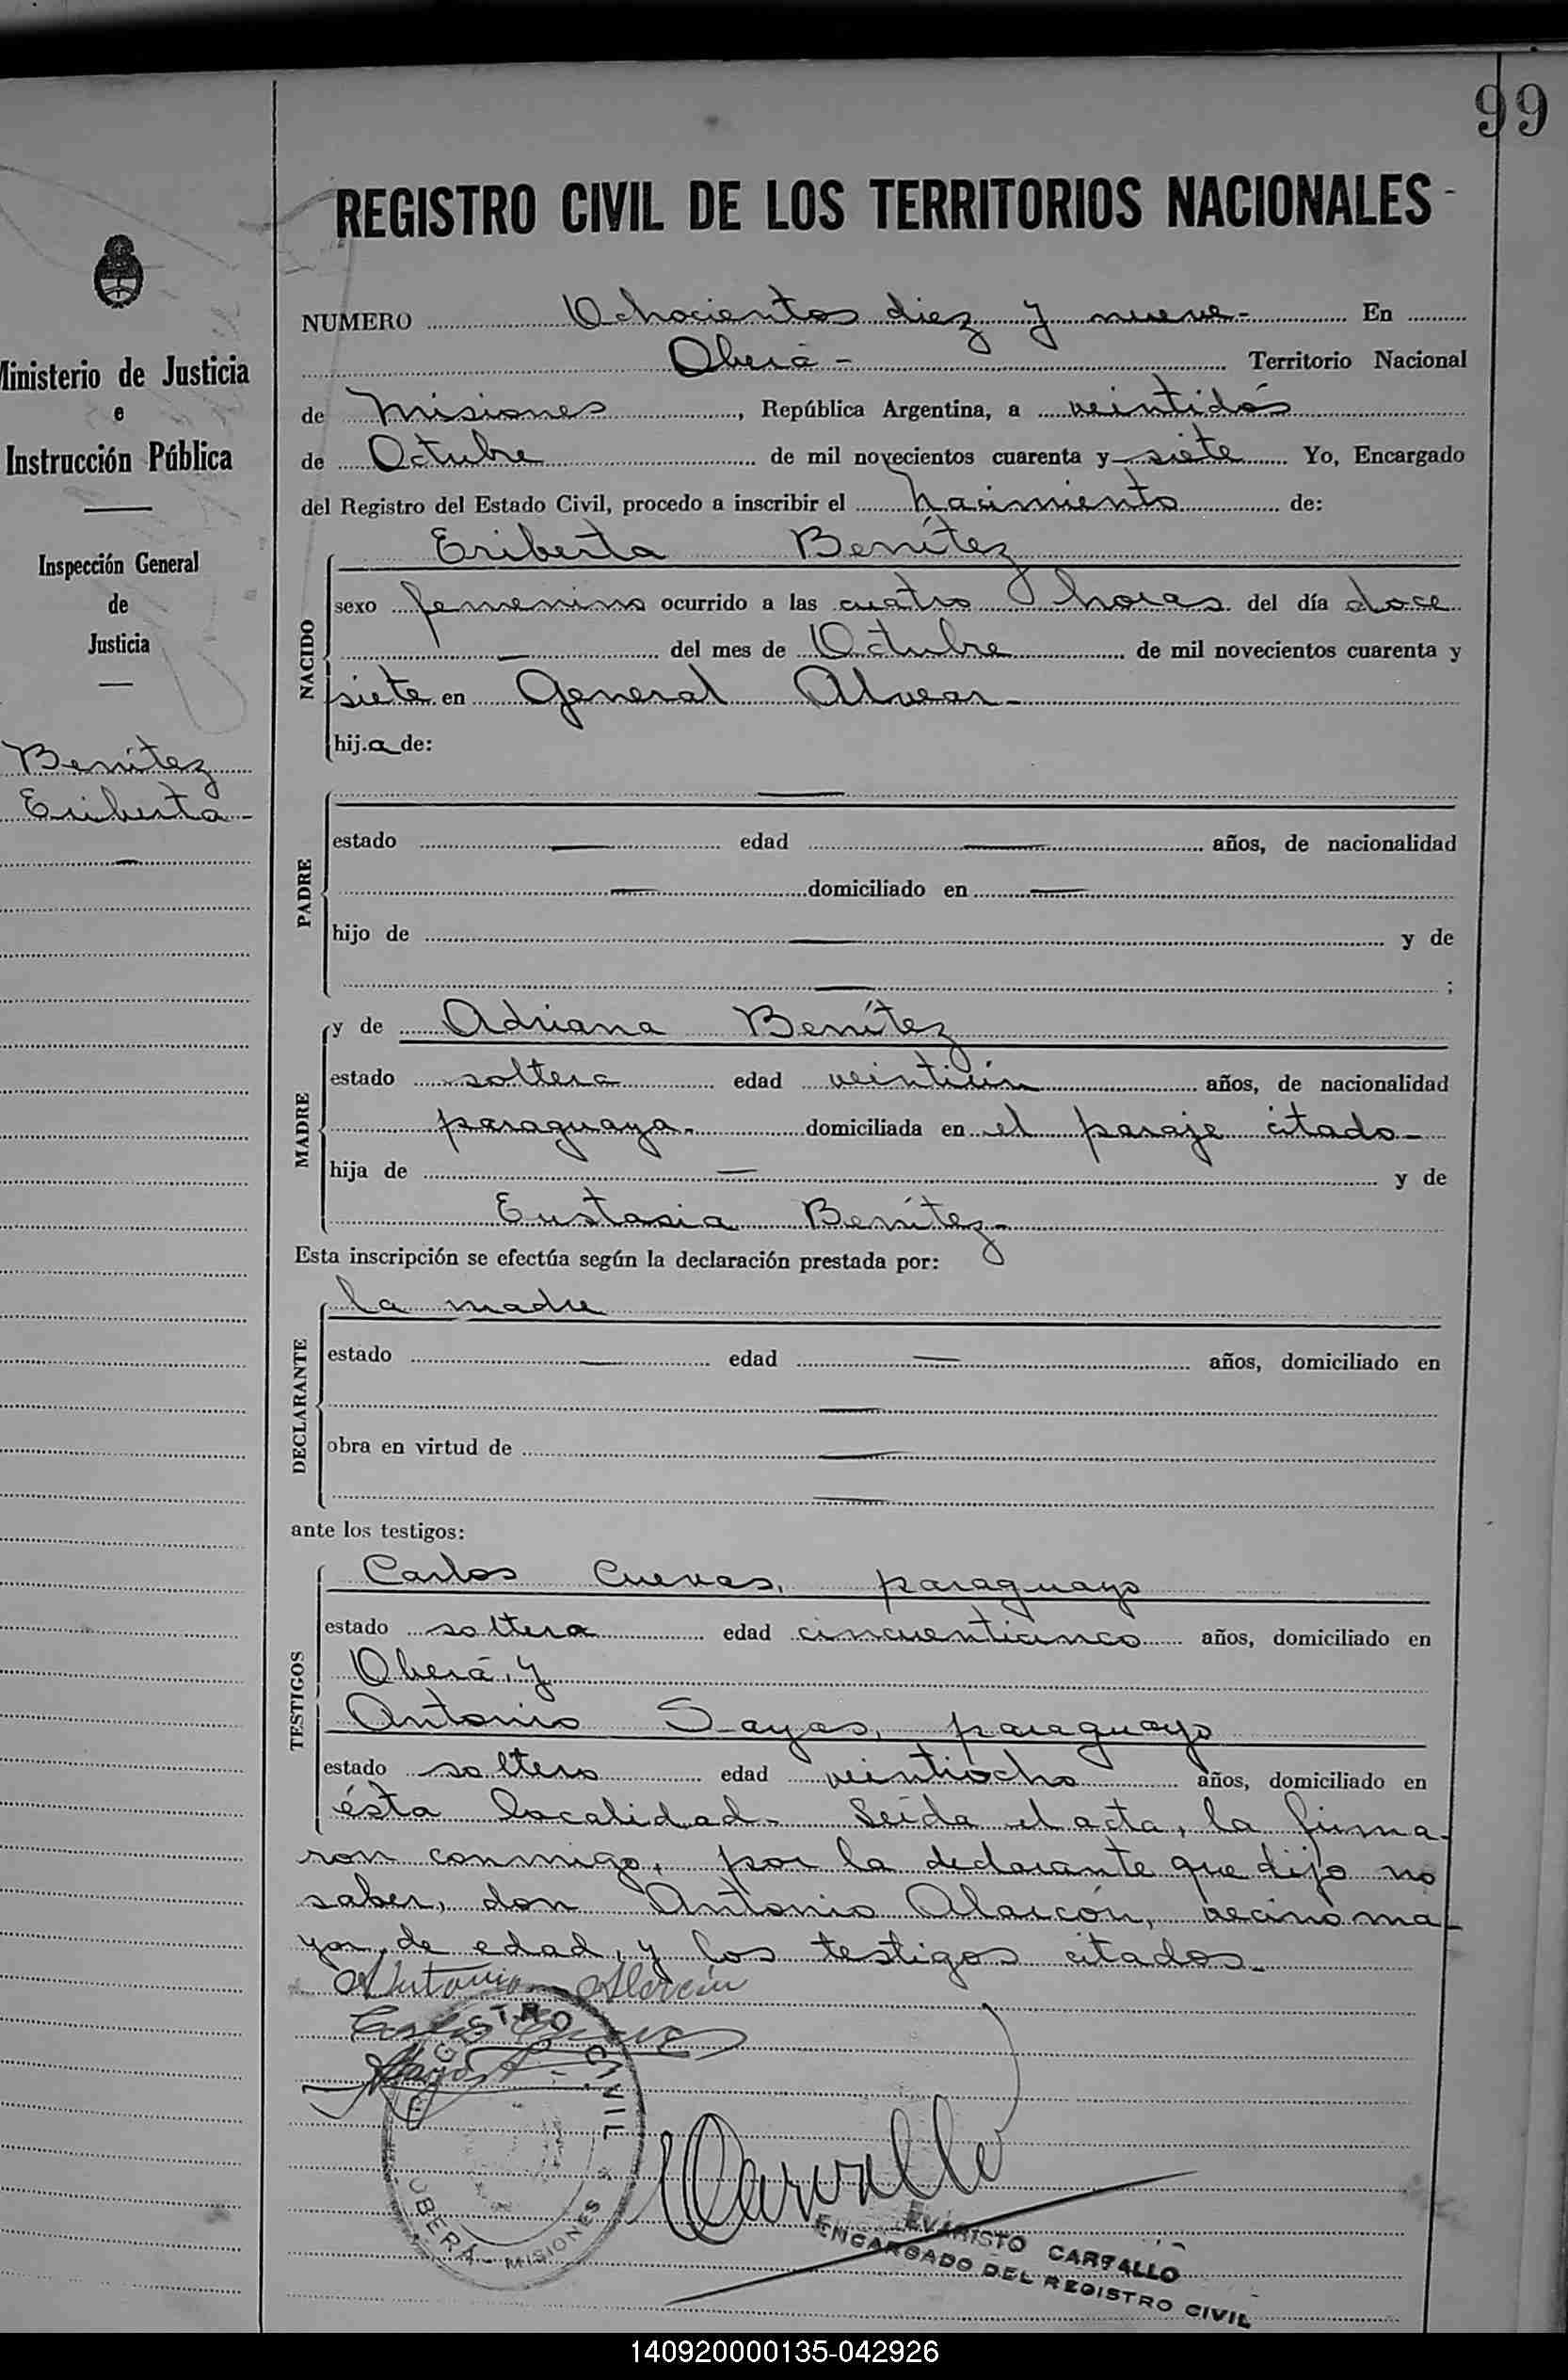 99
REGISTRO CIVIL DE LOS TERRITORIOS NACIONALES
Ministerio de Justicia
e
Instrucción Pública
Inspección General
de
Justicia
Benítez
Eriberta
NUMERO Ochocientos diez y nueve - En
Oberá - Territorio Nacional
de Misiones, República Argentina, a veintidós
de Octubre de mil novecientos cuarenta y siete Yo, Encargado
del Registro del Estado Civil, procedo a inscribir el nacimiento de:
NACIDO
Eriberta Benítez
sexo femenino ocurrido a las cuatro horas del día doce
del mes de Octubre de mil novecientos cuarenta y
siete en General Alvear -
hija de:
PADRE
estado edad años, de nacionalidad
domiciliado en
hijo de y de
;
MADRE
y de Adriana Benítez
estado soltera edad veintiún años, de nacionalidad
paraguaya - domiciliada en el paraje citado -
hija de y de
Eustasia Benítez -
Esta inscripción se efectúa según la declaración prestada por:
DECLARANTE
la madre
estado edad años, domiciliado en
obra en virtud de
ante los testigos:
TESTIGOS
Carlos Cuevas, paraguayo
estado soltero edad cincuenticinco años, domiciliado en
Oberá, y
Antonio Sayas, paraguayo
estado soltero edad veintiocho años, domiciliado en
ésta localidad - Leída el acta, la firma-
ron conmigo, por la declarante que dijo no
saber, don Antonio Alarcón, vecino ma-
yor de edad, y los testigos citados -
Antonio Alarcón
Carlos Cuevas
REGISTRO CIVIL
OBERÁ - MISIONES
EVARISTO CARVALLO
ENCARGADO DEL REGISTRO CIVIL
140920000135-042926